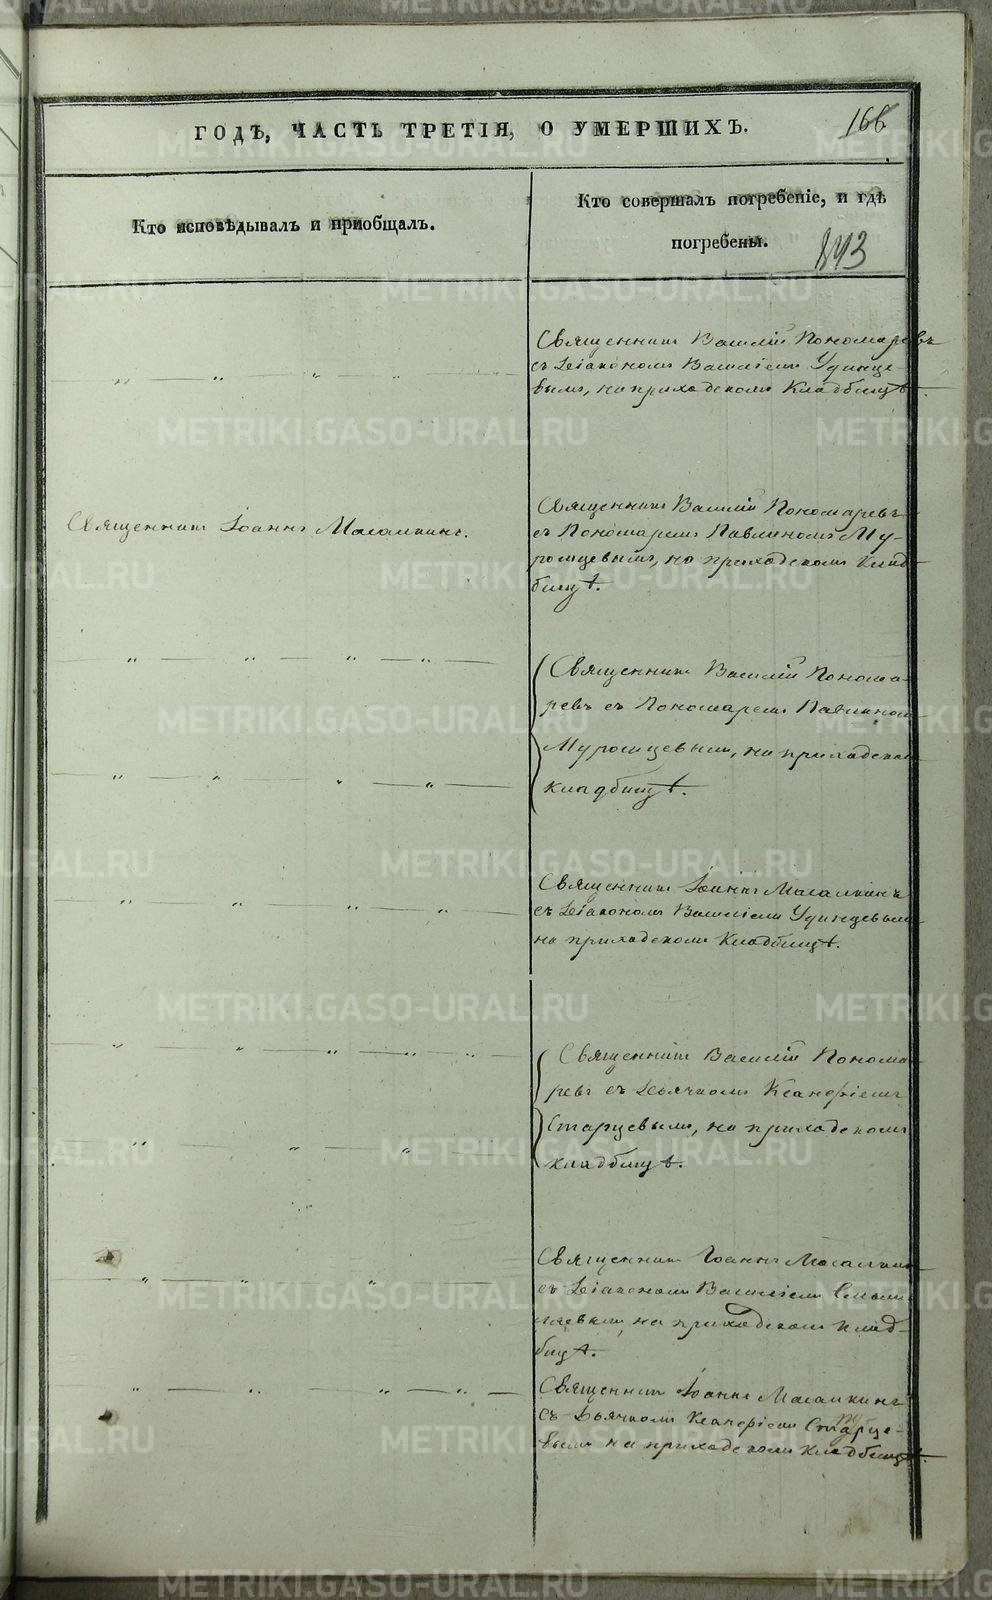 ГОДЪ, ЧАСТЬ ТРЕТІЯ, О УМЕРШИХЪ.
166
Кто исповѣдывалъ и приобщалъ.
Кто совершалъ погребеніе, и гдѣ
погребены.
843
Священникъ Василій Пономаревъ
съ Діакономъ Василіемъ Удинце-
вымъ, на приходскомъ Кладбищѣ.
Священникъ Іоаннъ Масалкинъ.
Священникъ Василій Пономаревъ
съ Пономаремъ Павлиномъ Му-
ромцевымъ, на приходскомъ Клад-
бищѣ.
Священникъ Василій Понома-
ревъ съ Пономаремъ Павлиномъ
Муромцевымъ, на приходском
кладбищѣ.
Священникъ Іоаннъ Масалкинъ
съ Діакономъ Василіемъ Удинцевым
на приходскомъ Кладбищѣ.
Священникъ Василій Понома-
ревъ съ Дьячкомъ Ксанфіемъ
Старцевымъ, на приходскомъ
кладбищѣ.
Священникъ Іоаннъ Масалкин
съ Діакономъ Василіемъ
на приходскомъ клад-
бищѣ.
Священникъ Іоаннъ Масалкинъ
съ Дьячкомъ Ксанфіемъ Старце-
вымъ на приходскомъ Кладбищѣ.
METRIKI.GASO-URAL.RU